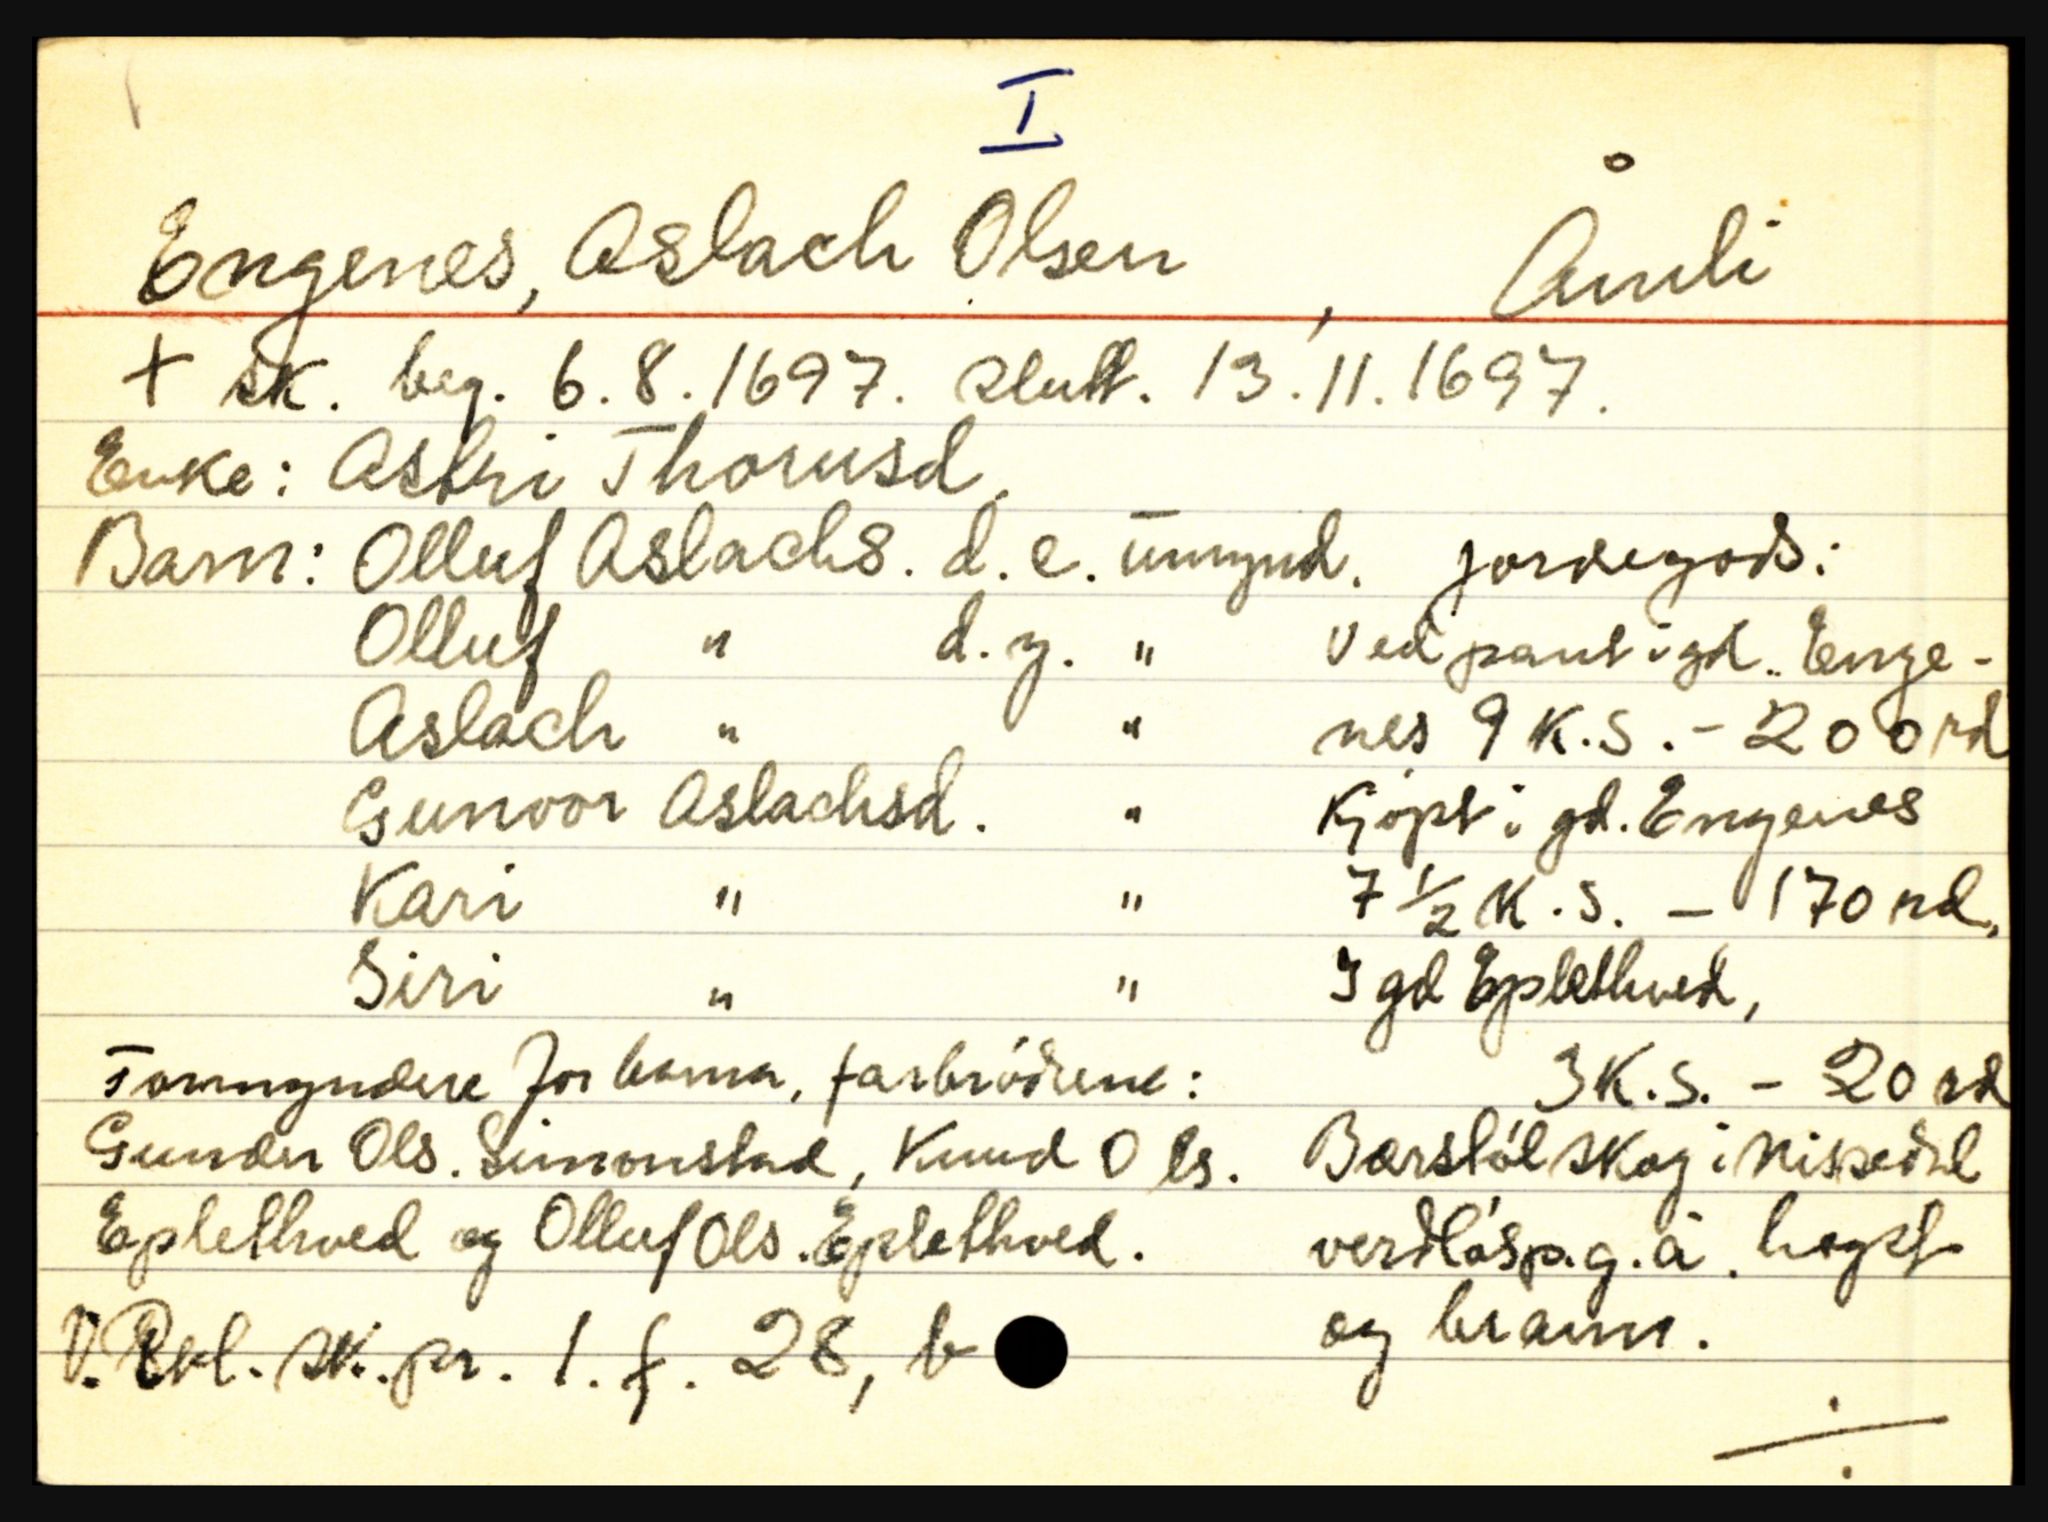 I
Engenes, Aslach Olsen, Åmli
+ sk. beg. 6.8.1697. slutt. 13.11.1697.
Enke: Astri Thorusd.
Barn: Olluf Aslachs. d. e. umynd. Jordegods:
Olluf " d. y. " Ved pant i gd. Enge-
Aslach " " nes 9 K.S. - 200 rd
Gunvor Aslachsd. " Kjöpt i gd. Engenes
Kari " " 7 1/2 K.S. - 170 rd.
Siri " " I gd Eplethved,
Formyndere for barna, farbrödrene: 3 K.S. - 20 rd
Gunder Ols. Simonstad, Knud Ols. Barstöl skog i Nissedal
Eplethved og Olluf Ols. Eplethved. verdlös p.g.a. hogst
V. Rkl. sk. pr. 1. f. 28, b og brann.